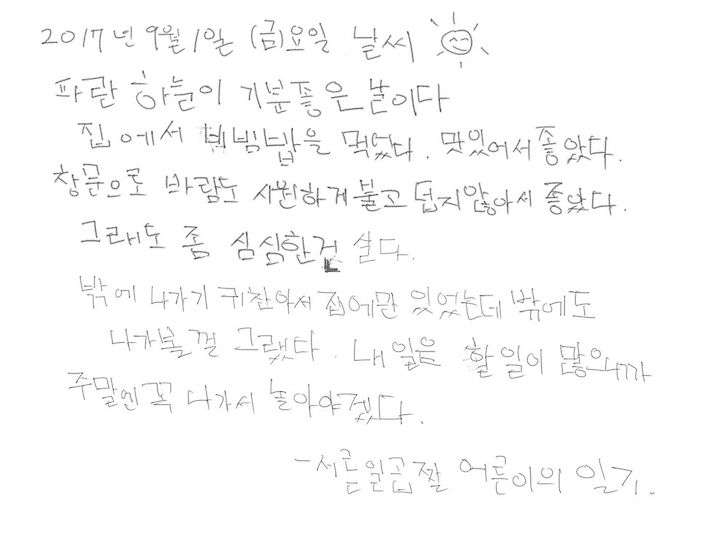 2017년 9월 1일 (금)요일 날씨
파란 하늘이 기분좋은 날이다
집에서 비빔밥을 먹었다. 맛있어서 좋았다.
창문으로 바람도 시원하게불고 덥지않아서 좋았다.
그래도 좀 심심한건 싫다.
밖에 나가기 귀찮아서 집에만 있었는데 밖에도
나가볼껄 그랬다. 내일은 할일이 많으니까
주말엔 꼭 나가서 놀아야겠다.
-서른일곱짤 어른이의 일기.